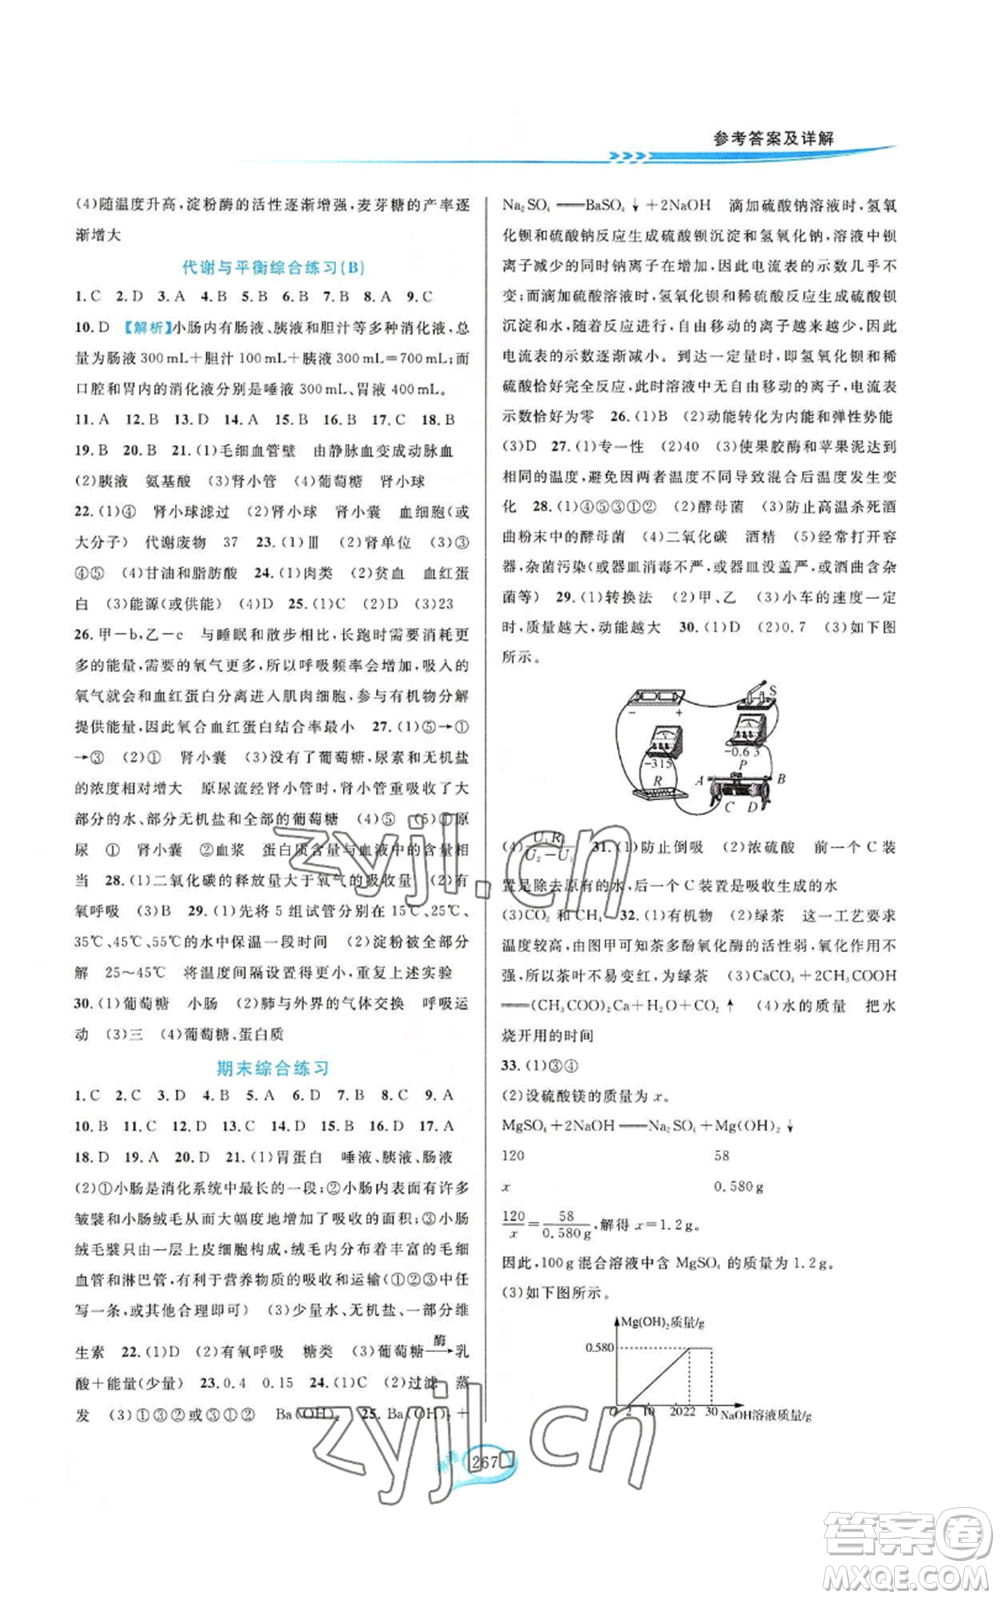 参考答案及详解
(4)随温度升高,淀粉酶的活性逐渐增强,麦芽糖的产率逐
渐增大
代谢与平衡综合练习(B)
1.C 2.D 3.A 4.B 5.B 6.C 7.B 8.A 9.C
10.D 【解析】小肠内有肠液、胰液和胆汁等多种消化液,总
量为肠液 300 mL+胆汁 100 mL+胰液=700 mL;而
口腔和胃内的消化液分别是唾液 300 mL、胃液 400 mL。
11.A 12.B 13.D 14.A 15.B 16.D 17.C 18.B
19.B 20.B 21.(1)毛细血管壁 由静脉血变成动脉血
(2)胰液 氨基酸 (3)肾小管 (4)葡萄糖 肾小球
22.(1)④ 肾小球滤过 (2)肾小球 肾小囊 血细胞(或
大分子) 代谢废物 37 23.(1)Ⅲ (2)肾单位 (3)③
④⑤ (4)甘油和脂肪酸 24.(1)肉类 (2)贫血 血红蛋
白 (3)能源(或供能) (4)D 25.(1)C (2)D (3)23
26.甲-b,乙-c 与睡眠和散步相比,长跑时需要更多
的能量,需要的氧气更多,所以呼吸频率非常高,吸入的
氧气就会和血红蛋白分离进入肌肉细胞,参与有机物分解
提供能量,因此氧合血红蛋白结合率最小 27.(1)⑤→①
→③ (2)① 肾小囊 (3)没有了葡萄糖,尿素和无机盐
的浓度相对增大 原尿流经肾小管时,肾小管吸收了大
部分的水、部分无机盐和全部的葡萄糖 (4)⑤ (5)原
尿 ① 肾小囊 ②血浆 蛋白质含量与血液中的含量相
当 28.(1)二氧化碳的释放量大于氧气的吸收量 (2)有
氧呼吸 (3)B 29.(1)先将 5 组试管分别在15℃、25℃、
35℃、45℃、55℃的水中保温一段时间 (2)淀粉被全部分
解 25~45℃ 将温度间隔设置得小一点,重复上述实验
30.(1)葡萄糖 小肠 (2)肺与外界的气体交换 呼吸运
动 (3)三 (4)葡萄糖、蛋白质
期末综合练习
1.C 2.C 3.C 4.B 5.A 6.D 7.D 8.C 9.A
10.B 11.D 12.C 13.C 14.B 15.D 16.D 17.A
18.D 19.A 20.D 21.(1)胃蛋白 唾液、胰液、肠液
(2)①小肠是消化系统中最长的一段;②小肠内表面有许多
皱襞和小肠绒毛从而大幅度地增加了吸收的面积;③小肠
绒毛壁由一层上皮细胞构成,其内分布着丰富的毛细
血管和淋巴管,有利于营养物质的吸收和运输(①②③中任
写一条,或其他合理即可) (3)少量水、无机盐、一部分维
生素 22.(1)D 有氧呼吸 糖类 (3)葡萄糖 酶→ 乳
酸+能量(少量) 23.0.4 0.15 24.(1)C (2)过滤 蒸
发 (3)①③②或①②③ Ba(OH)₂ 25.Ba(OH)₂+
Na₂SO₄══BaSO₄↓+2NaOH 滴加硫酸钠溶液时,氢氧
化钡和硫酸钠反应生成硫酸钡沉淀和氢氧化钠,溶液中钡
离子减少的同时钠离子增多,因此电流表的示数没有为零的改
变;而滴加硫酸溶液时,氢氧化钡和硫酸反应生成硫酸钡
沉淀和水,随着反应的进行,自由移动的离子越来越少,因此
电流表的示数逐渐减小。到达一定量时,即氢氧化钡和稀
硫酸恰好完全反应,此时溶液中无自由移动的离子,电流表
示数恰好为零 26.(1)B (2)动能转化为内能和弹性势能
(3)D 27.(1)专一性 (2)40 (3)使果胶酶和苹果泥达到
相同的温度,避免因两者温度不同导致混合后温度发生变
化 28.(1)④⑤③①② (2)酵母菌 (3)防止高温杀死酒
曲粉末中的酵母菌 (4)二氧化碳 酒精 (5)经常打开容
器,杂菌污染(或器皿没有消毒,或器皿没盖严,或杂
菌等) 29.(1)转换法 (2)甲、乙 (3)小车的速度一定
时,质量越大,动能越大 30.(1)D (2)0.7 (3)如下图
所示。
S
− +
-0.6 3
-3 15
P
R A B
C D
(4)U₁R/(U₂−U₁) 31.(1)防止倒吸 (2)浓硫酸 前一个 C 装
置是除去原有的水,后一个 C 装置是吸收生成的水
(3)CO₂ 和 CH₄ 32.(1)有机物 (2)绿茶 这一工艺要求
温度较高,由图甲可知茶多酚氧化酶的活性弱,氧化作用不
强,所以茶叶不易变红,为绿茶 (3)CaCO₃+2CH₃COOH
══(CH₃COO)₂Ca+H₂O+CO₂↑ (4)水的质量 把水
烧开用的时间
33.(1)③④
(2)设硫酸镁的质量为 x。
MgSO₄+2NaOH══Na₂SO₄+Mg(OH)₂↓
120 58
x 0.580 g
120/x=58/0.580 g,解得 x=1.2 g。
因此,100 g 混合溶液中含 MgSO₄ 的质量为 1.2 g。
(3)如下图所示。
Mg(OH)₂质量/g
0.580
0 2 10 2022 30 NaOH溶液质量/g
267
zyjl.cn
zyjl.cn
答案卷
MXQE.COM